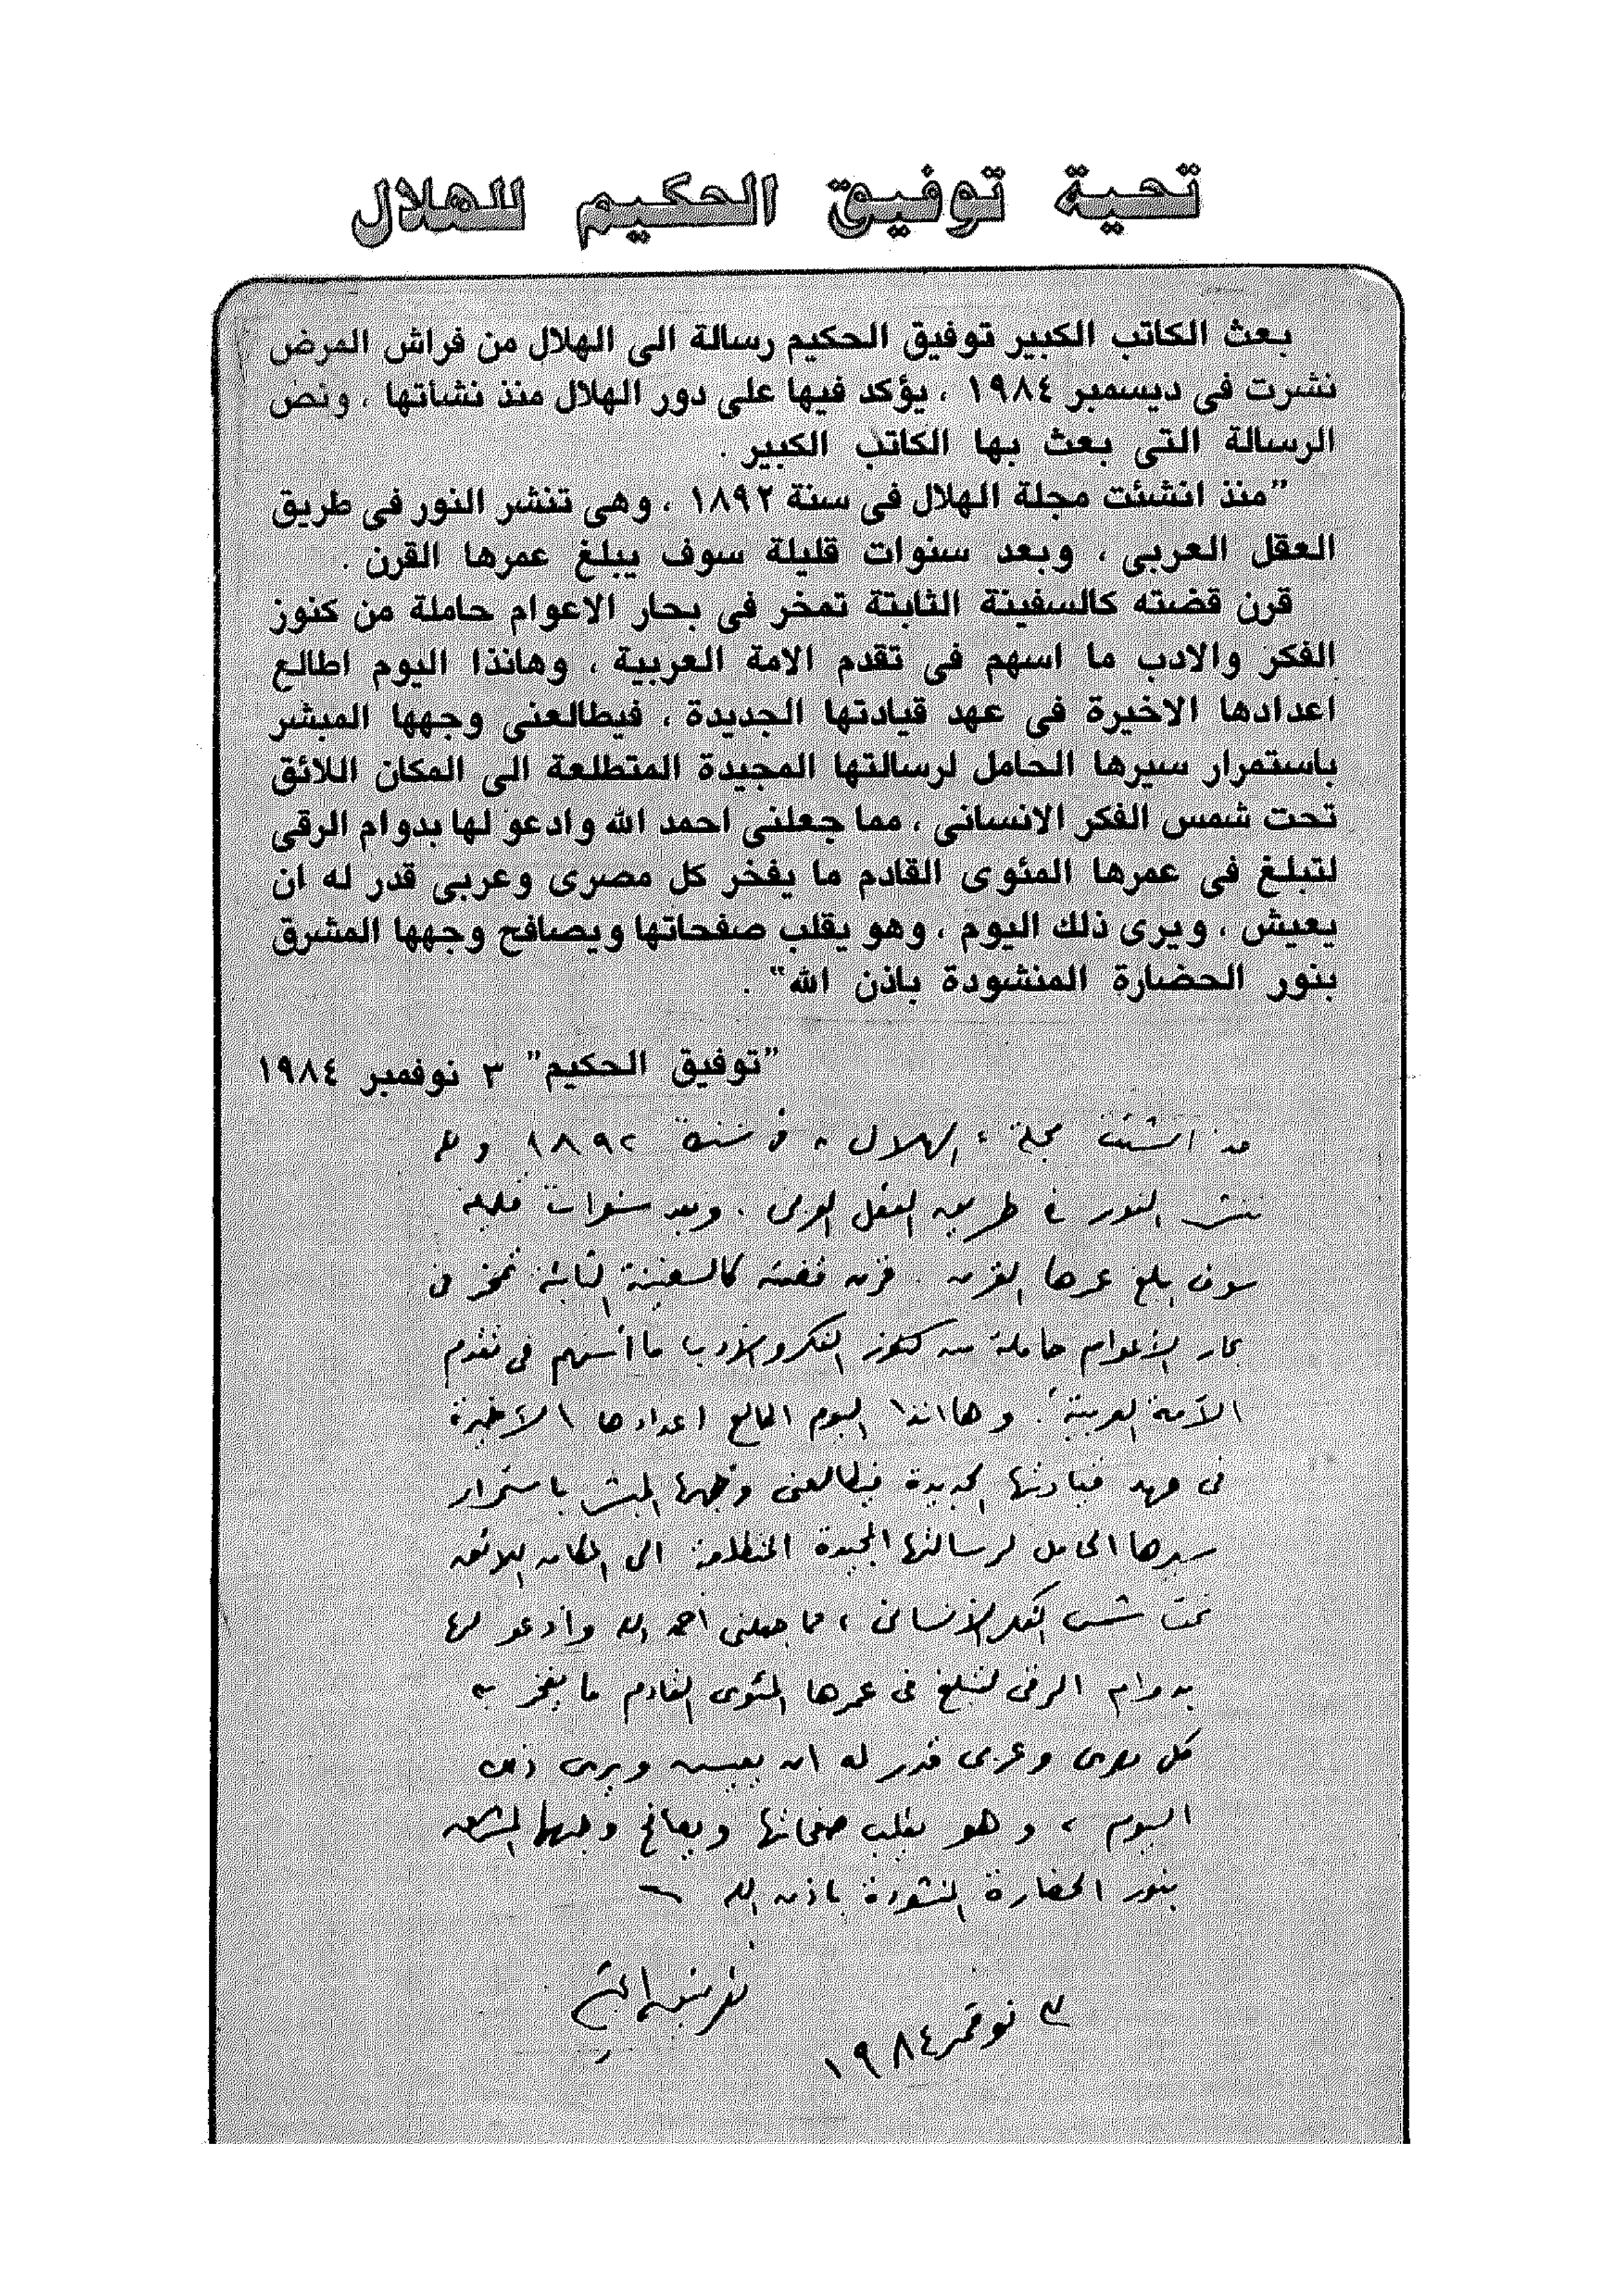 تحية توفيق الحكيم للهلال
بعث الكاتب الكبير توفيق الحكيم رسالة الى الهلال من فراش المرض
نشرت فى ديسمبر ١٩٨٤ ، يؤكد فيها على دور الهلال منذ نشأتها ، ونص
الرسالة التى بعث بها الكاتب الكبير .
"منذ انشئت مجلة الهلال فى سنة ١٨٩٢ ، وهى تنشر النور فى طريق
العقل العربى ، وبعد سنوات قليلة سوف يبلغ عمرها القرن .
قرن قضته كالسفينة الثابتة تمخر فى بحار الاعوام حاملة من كنوز
الفكر والادب ما اسهم فى تقدم الامة العربية ، وهانذا اليوم اطالع
اعدادها الاخيرة فى عهد قيادتها الجديدة ، فيطالعنى وجهها المبشر
باستمرار سيرها الحامل لرسالتها المجيدة المتطلعة الى المكان اللائق
تحت شمس الفكر الانسانى ، مما جعلنى احمد الله وادعو لها بدوام الرقى
لتبلغ فى عمرها المئوى القادم ما يفخر كل مصرى وعربى قدر له ان
يعيش ، ويرى ذلك اليوم ، وهو يقلب صفحاتها ويصافح وجهها المشرق
بنور الحضارة المنشودة باذن الله" .
"توفيق الحكيم" ٣ نوفمبر ١٩٨٤
منذ انشئت مجلة " الهلال " فى سنة ١٨٩٢ وهى
تنشر النور فى طريق العقل العربى . وبعد سنوات قليلة
سوف يبلغ عمرها القرن . قرن قضته كالسفينة الثابتة تمخر فى
بحار الأعوام حاملة من كنوز الفكر والأدب ما أسهم فى تقدم
الأمة العربية . وها انذا اليوم اطالع اعدادها الأخيرة
فى عهد قيادتها الجديدة فيطالعنى وجهها المبشر باستمرار
سيرها الحامل لرسالتها المجيدة المتطلعة الى المكان اللائق
تحت شمس الفكر الأنسانى ، مما جعلنى أحمد الله وأدعو لها
بدوام الرقى لتبلغ فى عمرها المئوى القادم ما يفخر به
كل مصرى وعربى قدر له ان يعيش ويرى ذلك
اليوم ، وهو يقلب صفحاتها ويصافح وجهها المشرق
بنور الحضارة المنشودة باذن الله
توفيق الحكيم
٣ نوفمبر ١٩٨٤